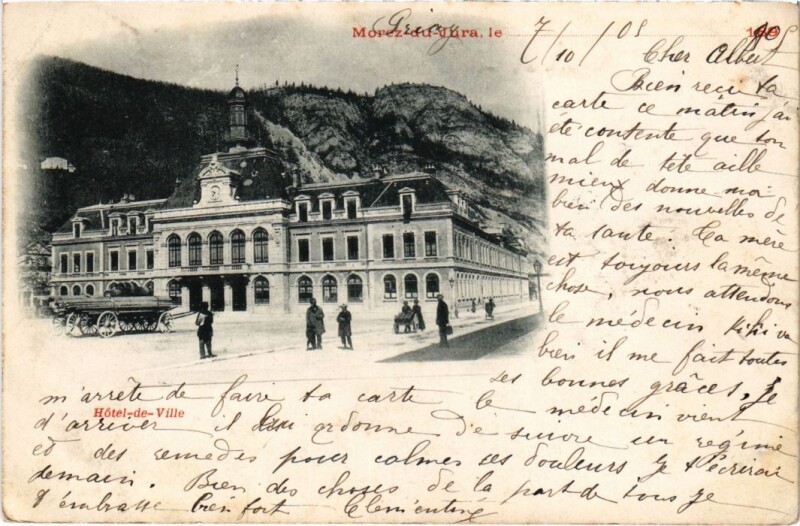 Morez-du-Jura, le 7/10/05
Cher Albert
Bien reçu ta
carte ce matin j'ai
été contente que ton
mal de tête aille
mieux donne moi
bien des nouvelles de
ta santé. Ta mère
est toujours la même
chose, nous attendons
le médecin Kiki va
bien il me fait toutes
ses bonnes grâces, je
m'arrête de faire ta carte le médecin vient
Hôtel-de-Ville
d'arriver il lui ordonne de suivre un regime
et des remedes pour calmer ses douleurs je t'écrirai
demain. Bien des choses de la part de tous je
t'embrasse bien fort Clementine